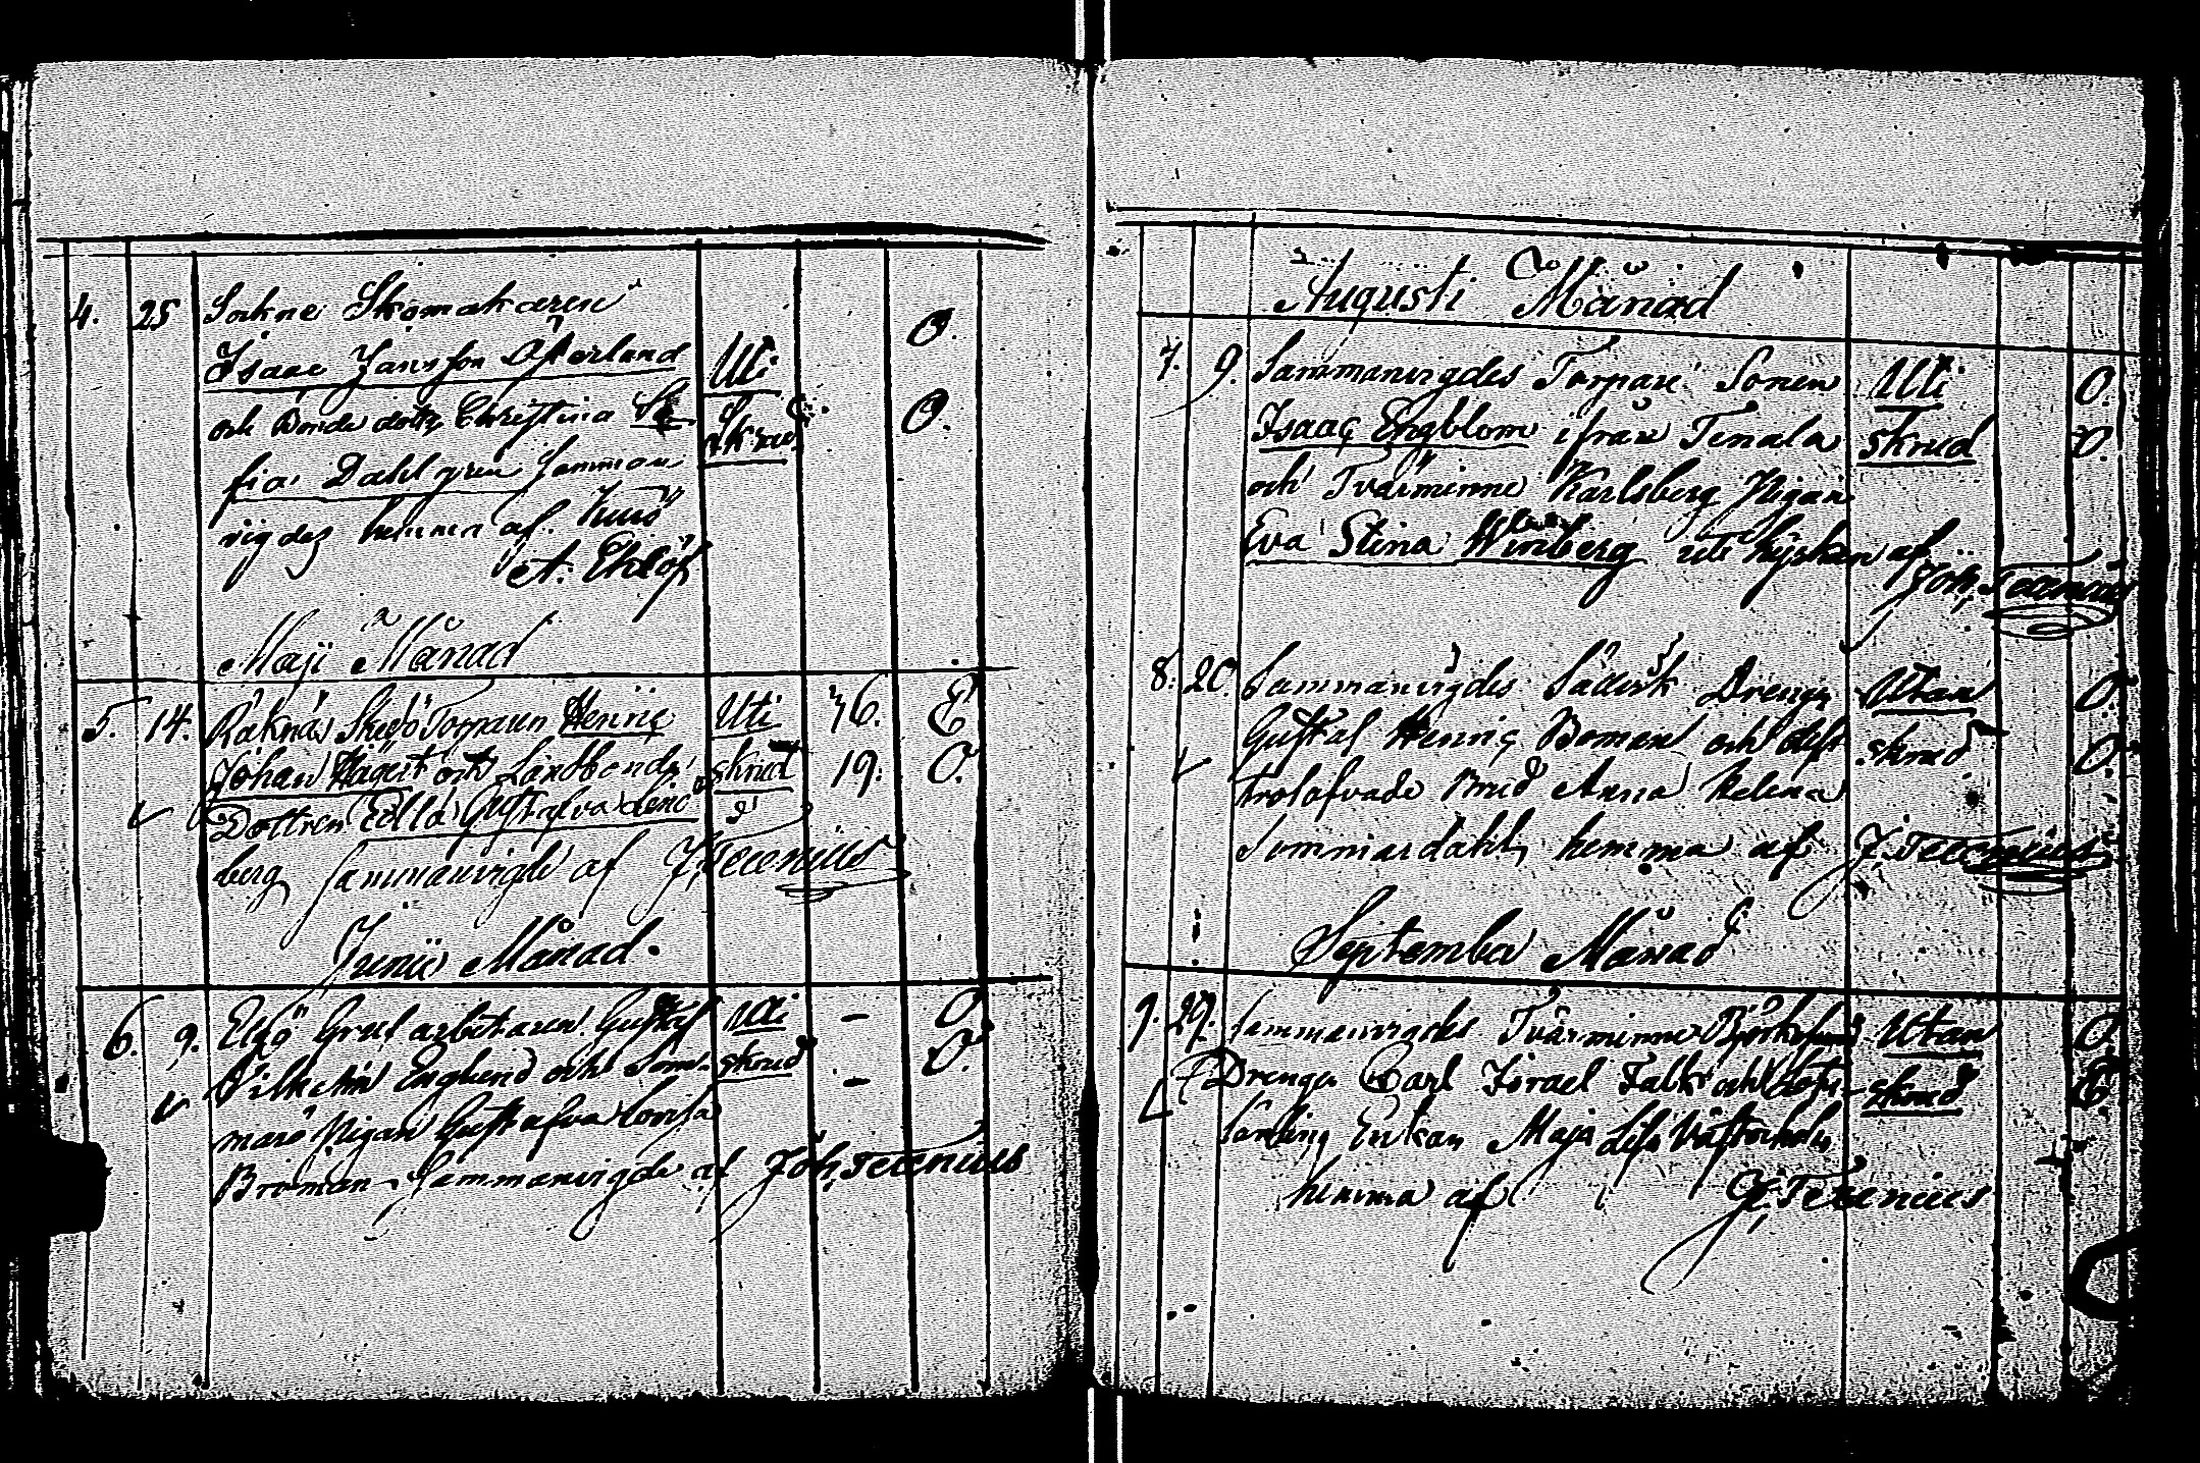 4. 25 Sokne Skomakaren
Isaac Jansson Österlund Uti O.
och Bonde dottr Christina So- Skrud O.
fia Dahlgren samman
vigdes hemma af
A. Ekelöf
Maji Månad
5. 14. Skogö Torparen Henric Uti 36. E
Johan Hagert och Landbonde skrud 19. O.
Dottren Edla Gustafva Lind
berg sammanvigde af J. Tecenius
Junii Månad.
6. 9. Elgö Gruf arbetaren Gustaf Uti — O
Vilhelm Englund och Som- skrud — O.
marö Pigan Gustafva Lovisa
Broman Sammanvigde af Joh. Tecenius
Augusti Månad
7. 9. Sammanvigdes Torpare Sonen Uti O.
Isaac Engblom ifrån Tenala skrud O.
och Tvärminne Karlsberg Pigan
Eva Stina Winberg uti kyrkan af
Joh. Tecenius
8. 20. Sammanvigdes Drengen Utan O.
Gustaf Henric Boman och dess skrud O.
trolofvade Brud Anna Helena
Sommardahl, hemma af J. Tecenius
September Månad
9. 29. Sammanvigdes Tvärminne Björkskärs Utan O.
Drengen Carl Israel Falk och skrud E
Enkan Maja Lisa
hemma af J. Tecenius